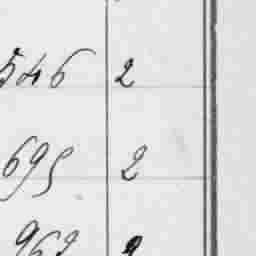 546 2
695 2
962 2